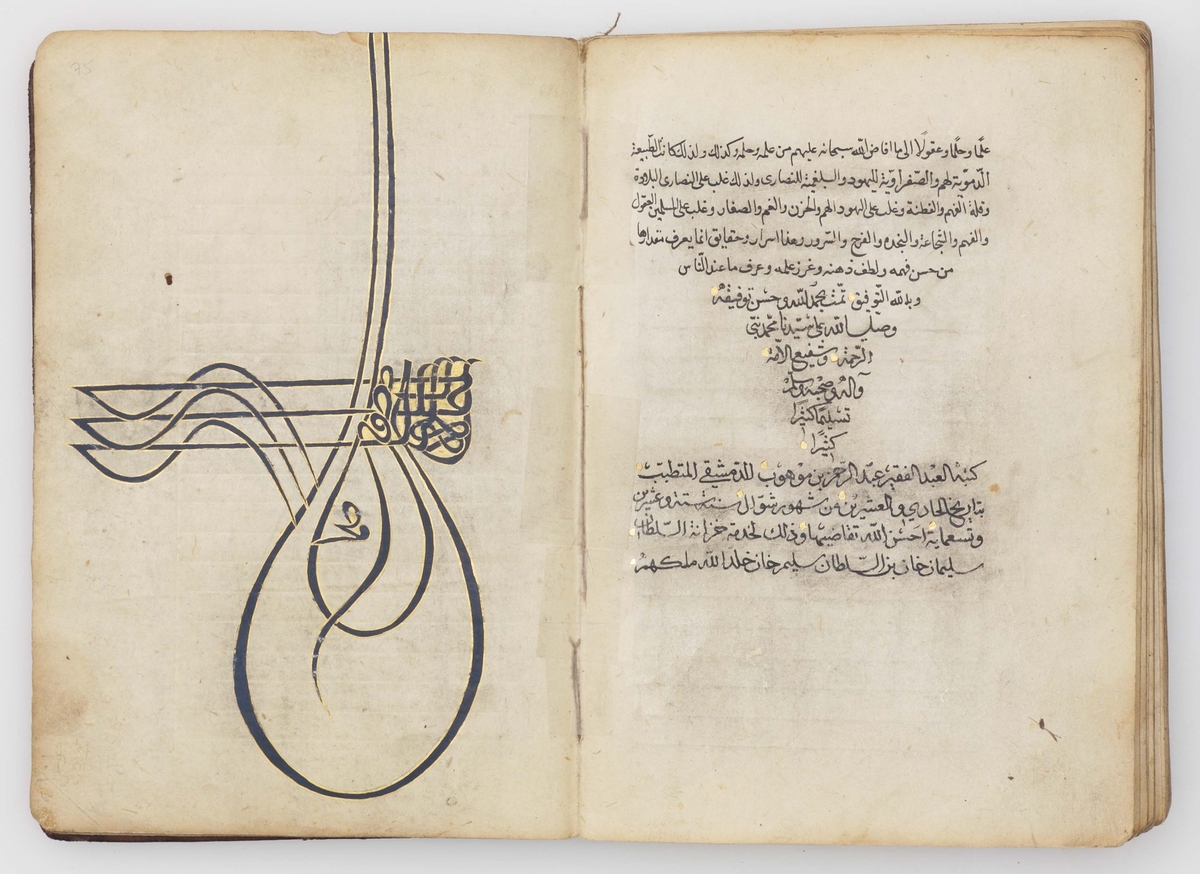 علمًا وحلمًا وعقولًا الى ما افاض الله سبحانه عليهم من علمه وحلمه وكذلك ولذلك كانت الطبيعة
الدّمويّة لهم والصّفراويّة لليهود والبلغميّة للنصارى ولذلك غلب على النصارى البلادة
وقلة الفهم والفطنة وغلب على اليهود الهم والحزن والغم والصغار وغلب على المسلمين العقول
والفهم والشجاعة والنجدة والفرح والسّرور وهذا اسرار وحقايق انما يعرف مقدارها
من حسن فهمه ولطف ذهنه وغزر علمه وعرف ما عند النّاس
وبالله التّوفيق تمّت بحمد الله وحسن توفيقه
وصلى الله على سيّدنا محمّد نبيّ
الرّحمة وشفيع الأمّة
وآله وصحبه وسلّم
تسليمًا كثيرًا
كثيرًا
كتبه العبد الفقير عبد الرّحمن بن موهوب الدّمشقي المتطبّب
بتاريخ الحادي والعشرين من شهور شوّال سنة ستة وعشرين
وتسعماية احسن الله تقاضيها وذلك لخدمة خزانة السّلطان
سليمان خان بن السّلطان سليم خان خلد الله ملكهم
75